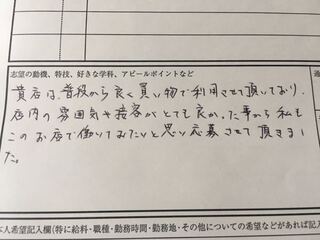 志望の動機、特技、好きな学科、アピールポイントなど
貴店は、普段から良く買い物で利用させて頂いており、
店内の雰囲気や接客がとても良かった事から私も
このお店で働いてみたいと思い応募させて頂きまし
た。
本人希望記入欄(特に給料・職種・勤務時間・勤務地・その他についての希望などがあれば記入